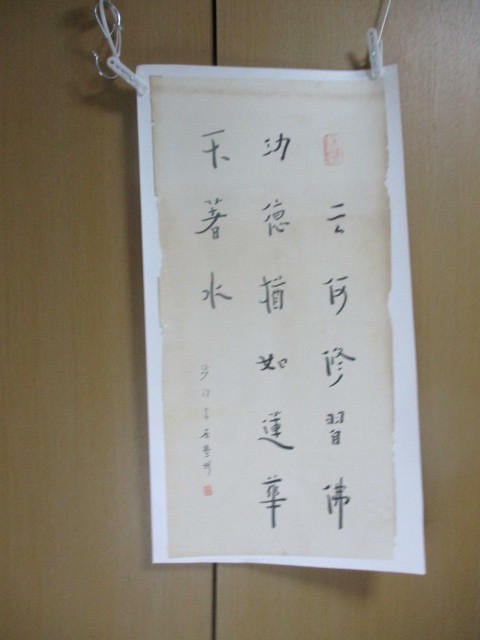 云何修習佛
功德猶如蓮華
不著水